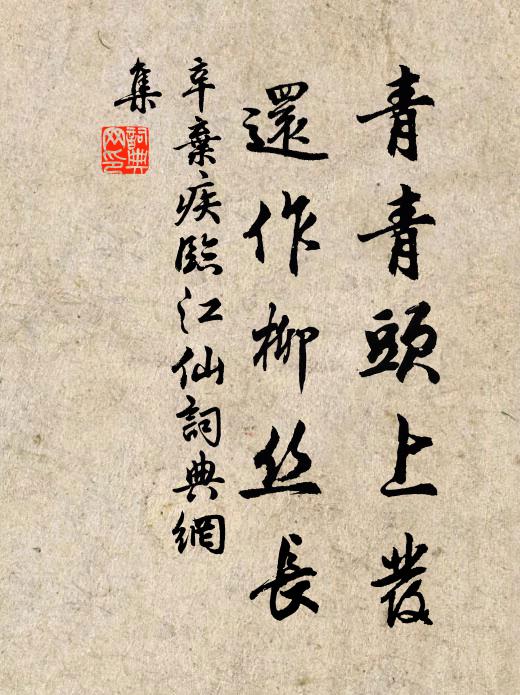 青青頭上發
還作柳丝長
辛棄疾臨江仙詞典網
集
詞典网印